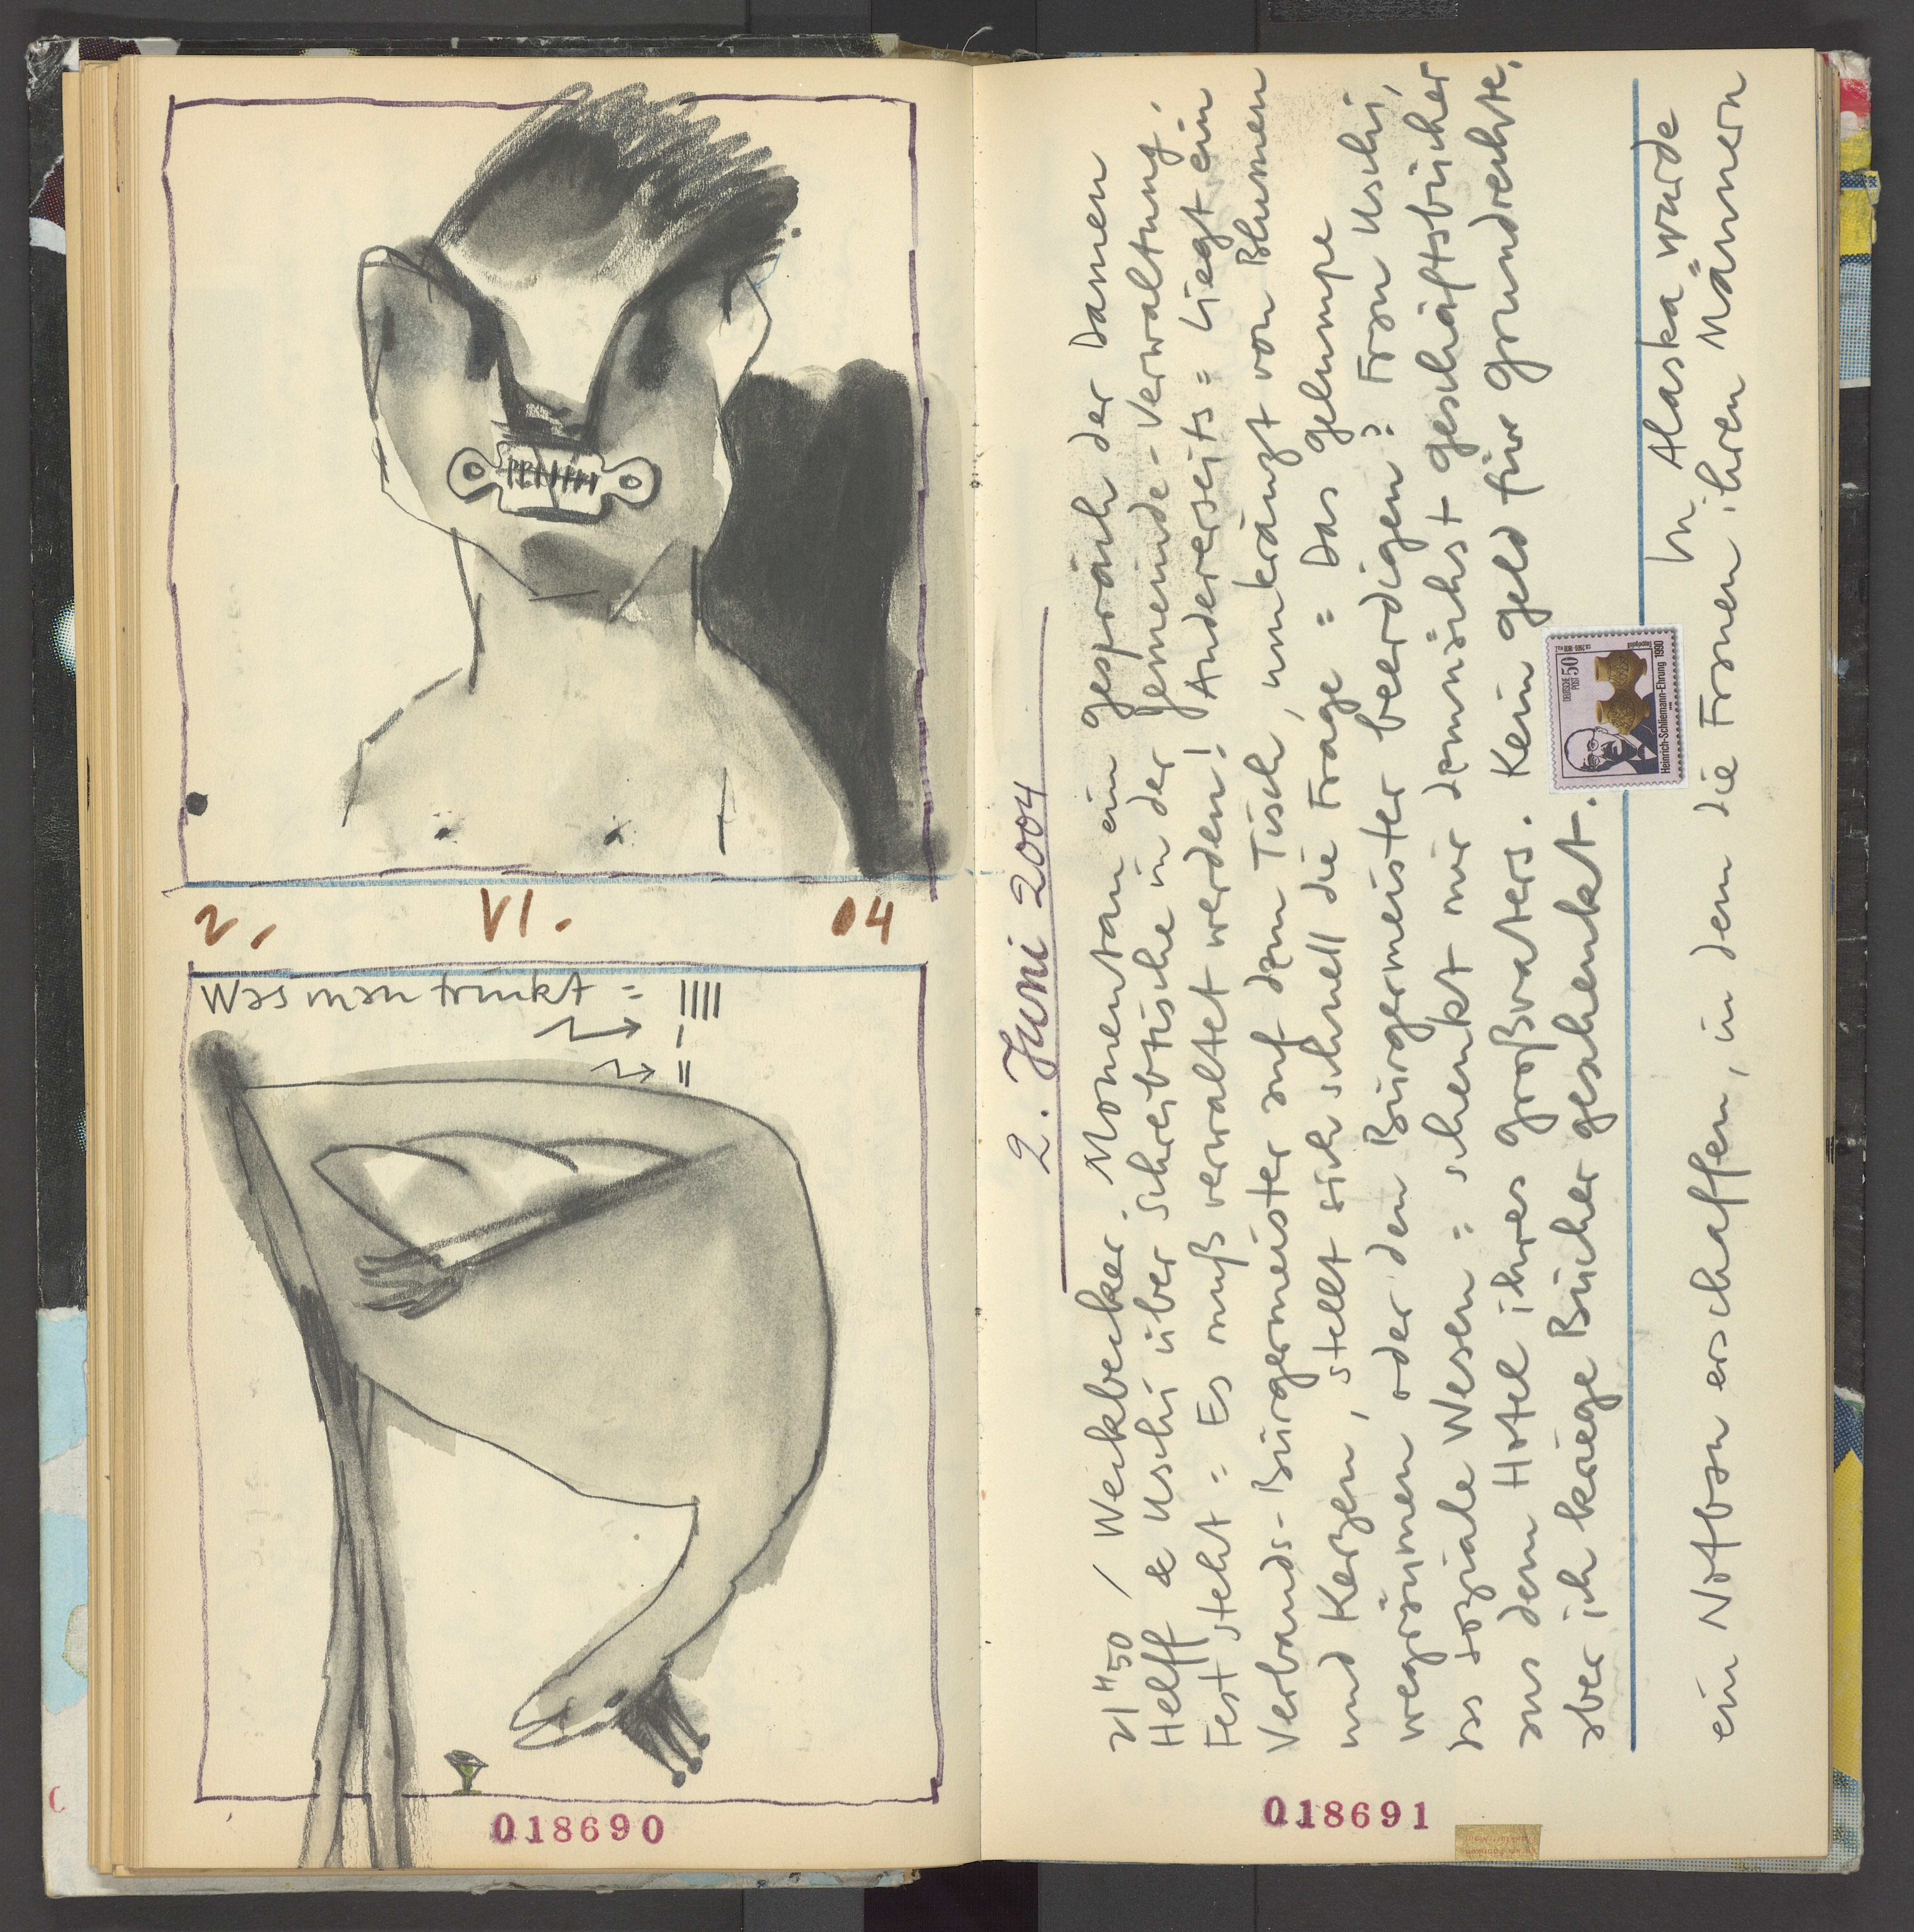 2. VI. 04
Was man trinkt =
018690
2. Juni 2004
21 H 50 / Weckbecker. Momentan ein Gespräch der Damen
Helff & Uschi über Schreibtische in der Gemeinde-Verwaltung,
Fest steht = Es muß verwaltet werden! Andererseits = Liegt ein
Verbands-Bürgermeister auf dem Tisch, umkränzt von Blumen
und Kerzen, stellt sich schnell die Frage = Das Gelumpe
wegräumen oder den Bürgermeister beerdigen? Frau Uschi,
das soziale Wesen = schenkt mir demnächst Geschäftsbücher
aus dem Hotel ihres Großvaters. Kein Geld für Grundrechte,
aber ich kriege Bücher geschenkt.
In Alaska wurde
ein Notbau erschaffen, in dem die Frauen ihren Männern
DEUTSCHE POST 50
Heinrich-Schliemann-Ehrung 1990
018691